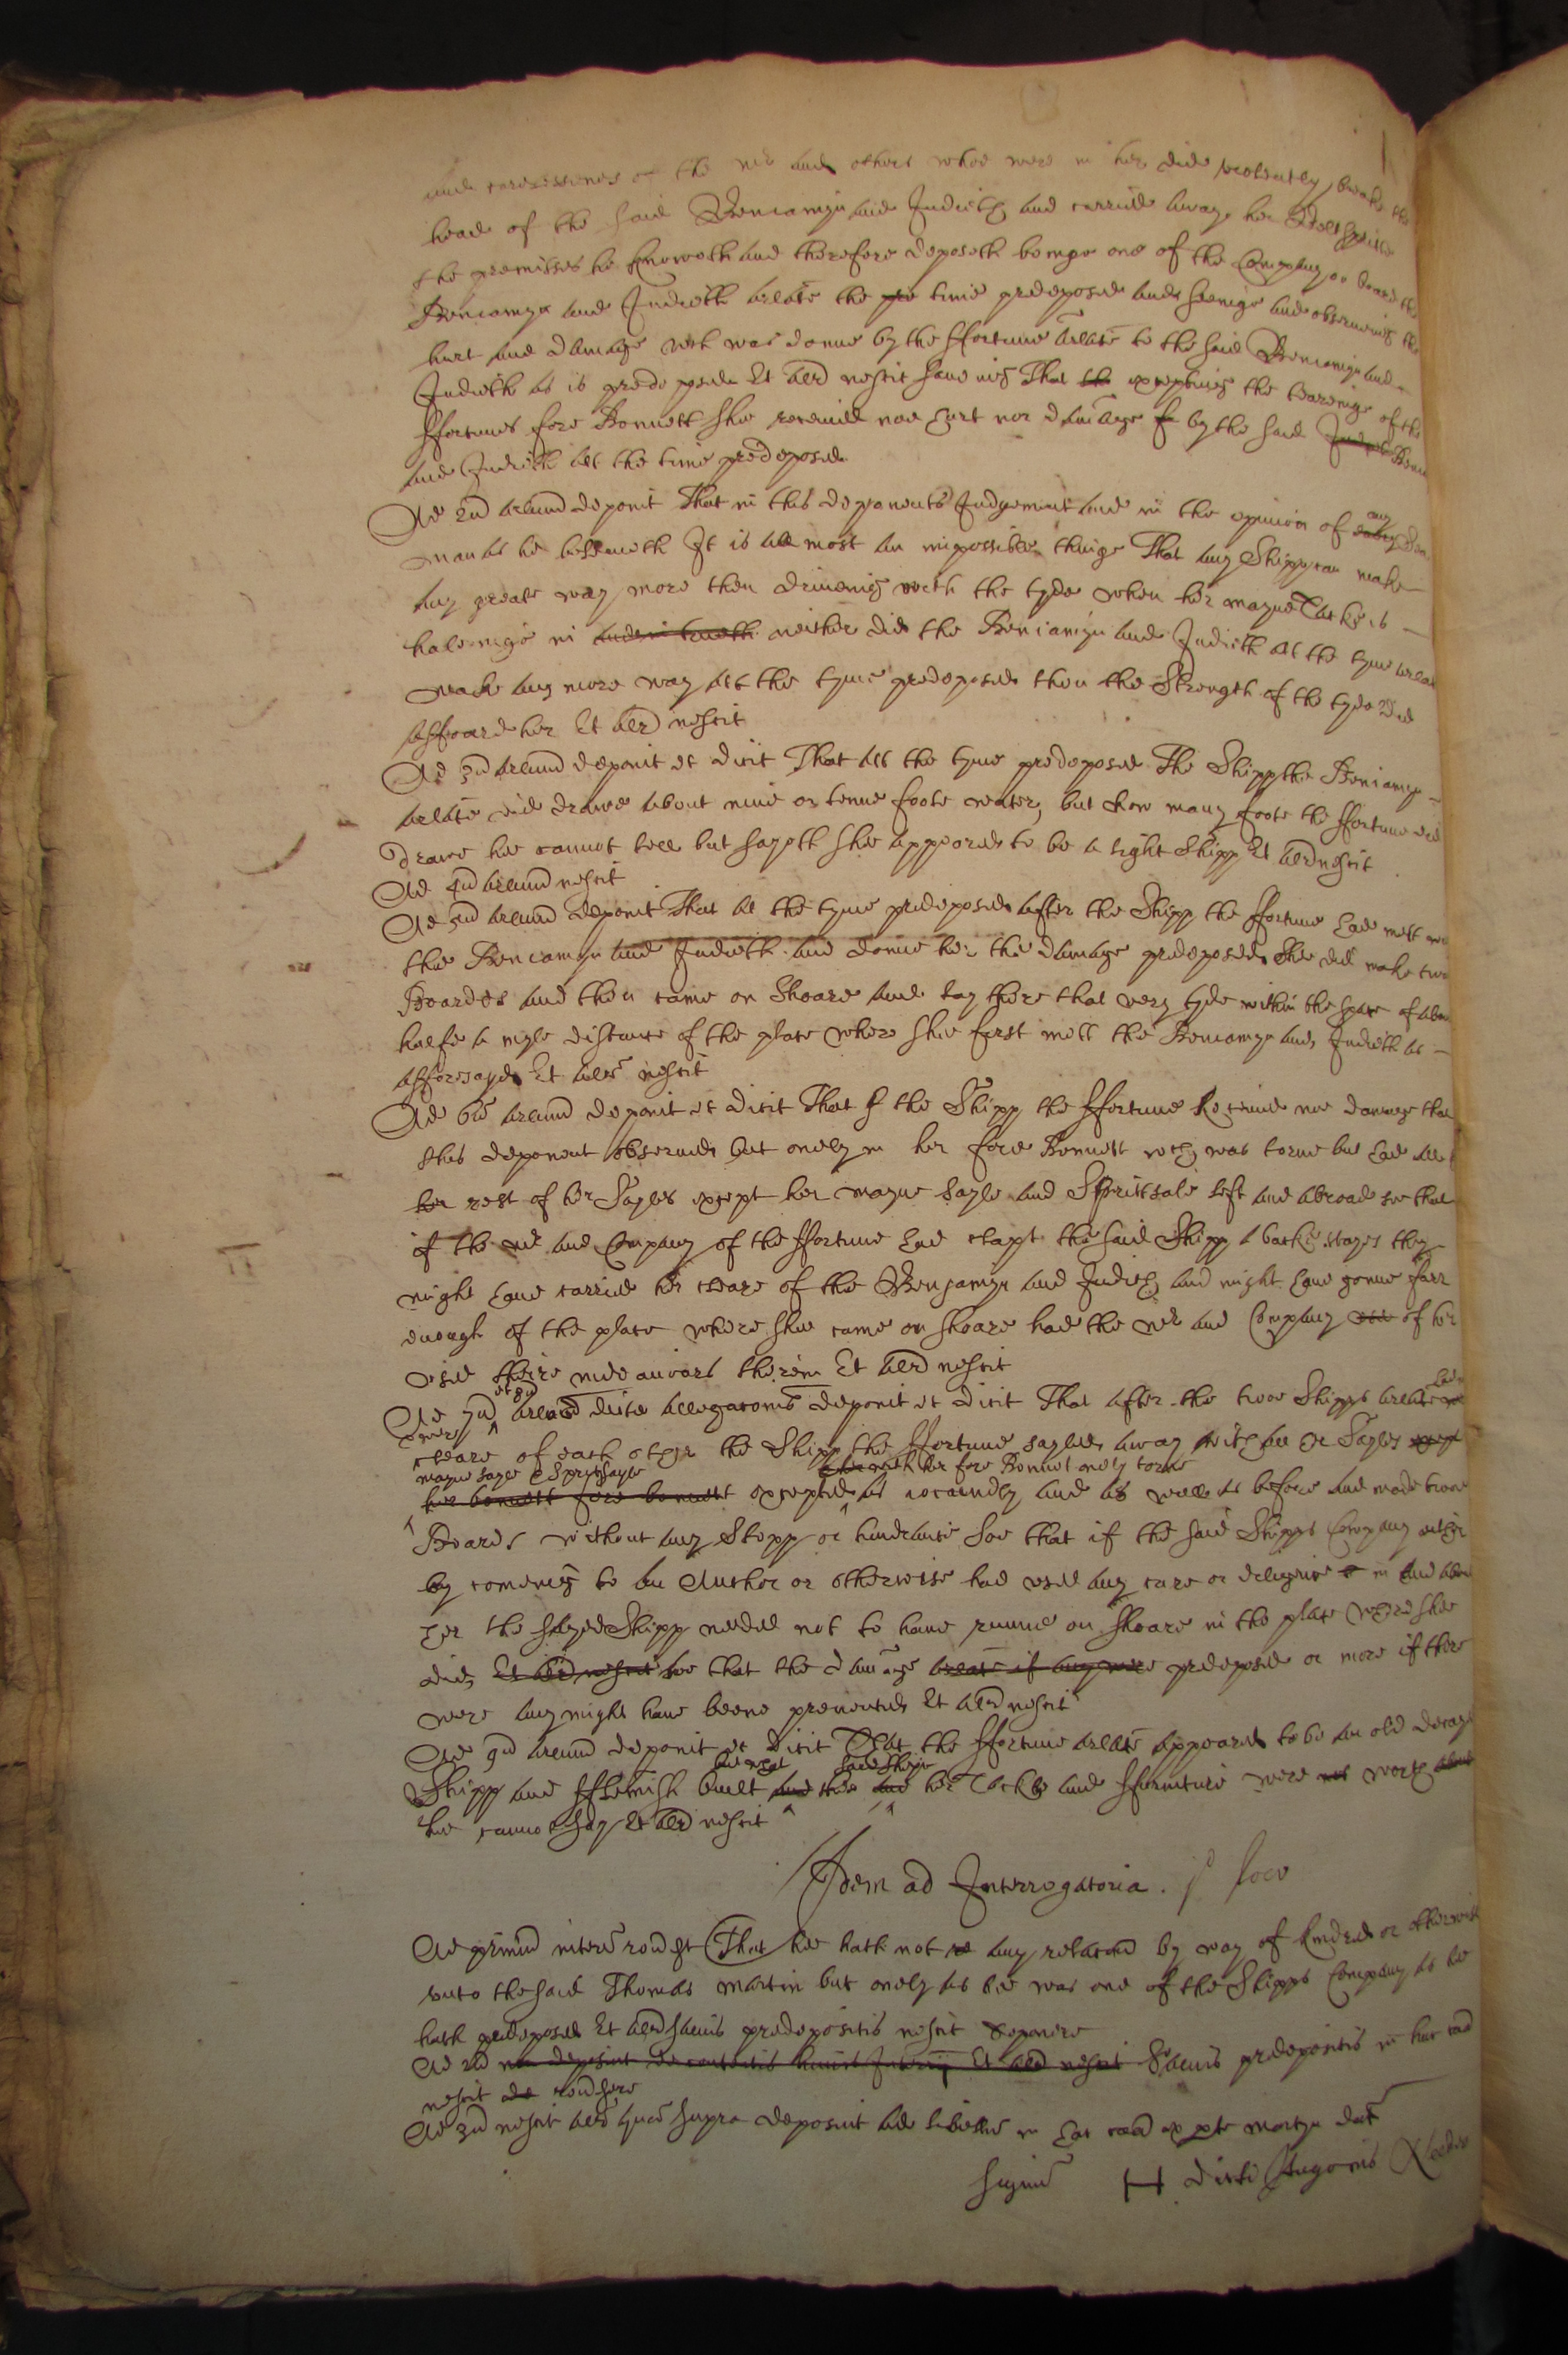 and carelessenes of the mr and others whoe were in her did violently breake the
head of the said Beniamyn and Judieth and carried away her Boltspritt
the premisses he knoweth and therefore deposeth beinge one of the Company on board the
Beniamyn and Judieth arlate the time predeposed and seeinge and observeing the
hurt and damage wch was donne by the ffortune arlate to the said Beniamyn and
Judieth as is predeposed Et alr nescit saveing That excepting the teareinge of the
ffortunes fore Bonnett she received noe hurt nor damage by the said Beni
and Judieth att the time predeposed
Ad 2um arlum deponit That in this deponents Judgement and in the opinion of any
man as he beleeveth It is allmost an impossible thinge That any Shipp can make
any greate way more then driveing with the tyde when her mayne Tack is
haleinge in neither did the Beniamyn and Judieth att the tyme arlate
make any more way att the tyme predeposed then the Strength of the tyde did
affoard her Et alr nescit
Ad 3um arlum deponit et dicit That att the tyme predeposed The Shipp the Beniamyn
arlate did drawe about nine or tenne foote water, but how many foote the ffortune did
drawe hee cannot tell but sayeth she appeared to be a light Shipp Et alr nescit
Ad 4um arlum nescit
Ad 5um arlum deponit That at the tyme predeposed after the Shipp the ffortune had mett with
the Beniamyn and Judieth and donne her the damage predeposed she did make two
Boardes and then came on Shoare and lay there that very tyde within the space of about
halfe a myle distance of the place where shee first mett the Beniamyn and Judieth as
afforesayd Et alr nescit
Ad 6um arlum deponit et dicit That the Shipp the ffortune Received noe damage that
this deponent observed but onely in her fore Bonnett wch was torne but had all
her rest of her Sayles except her mayne Sayle and Spritsale left and abroade soe that
if the mr and Company of the ffortune had clapt the said Shipp a back stayes they
might have carried her cleare of the Benjamyn and Judieth and might have gonne farr
enough of the place where shee came on shoare had the mr and Company of her
used theire indeavours therein Et alr nescit
Ad 7um et 8um arlos dicte allegaconis deponit et dicit That after the twoe Shipps arlate had
were
cleare of each other the Shipp the ffortune sayled away with all her Sayles except
mayne sayle & Spritsayle with her fore Bonnet onely torne
her bonnett fore bonnett excepted as roundly and as well as before and made twoe
Boards without any Stopp or hindrance Soe that if the said Shipps Company either
by comeing to an Anchor or otherwise had used any care or deligence in and about
her the sayd Shipp needed not to have runne on shoare in the place where shee
did, Et alr nescit soe that the damage arlate if any were predeposed or more if there
were any might have beene prevented Et alr nescit
Ad 9um arlum deponit et dicit That the ffortune arlate appeared to be an old decayed
but what said Shipp
Shipp and fflemish built and the and her Tackle and ffurniture were worth
hee cannot say Et alr nescit
Idem ad Interrogatoria. loco
Ad primum interr rondet That hee hath not any relacon by way of kindred or otherwise
unto the said Thomas Martin but onely as hee was one of the Shipps Company as he
hath predeposed Et alr salvis predepositis nescit deponere
Ad 2um Salvis predepositis in hac causa
nescit rondere
Ad 3um nescit alr quam supra deposuit ad libellum in hac causa ex pte Martyn dat
Signum H dicti Hugonis